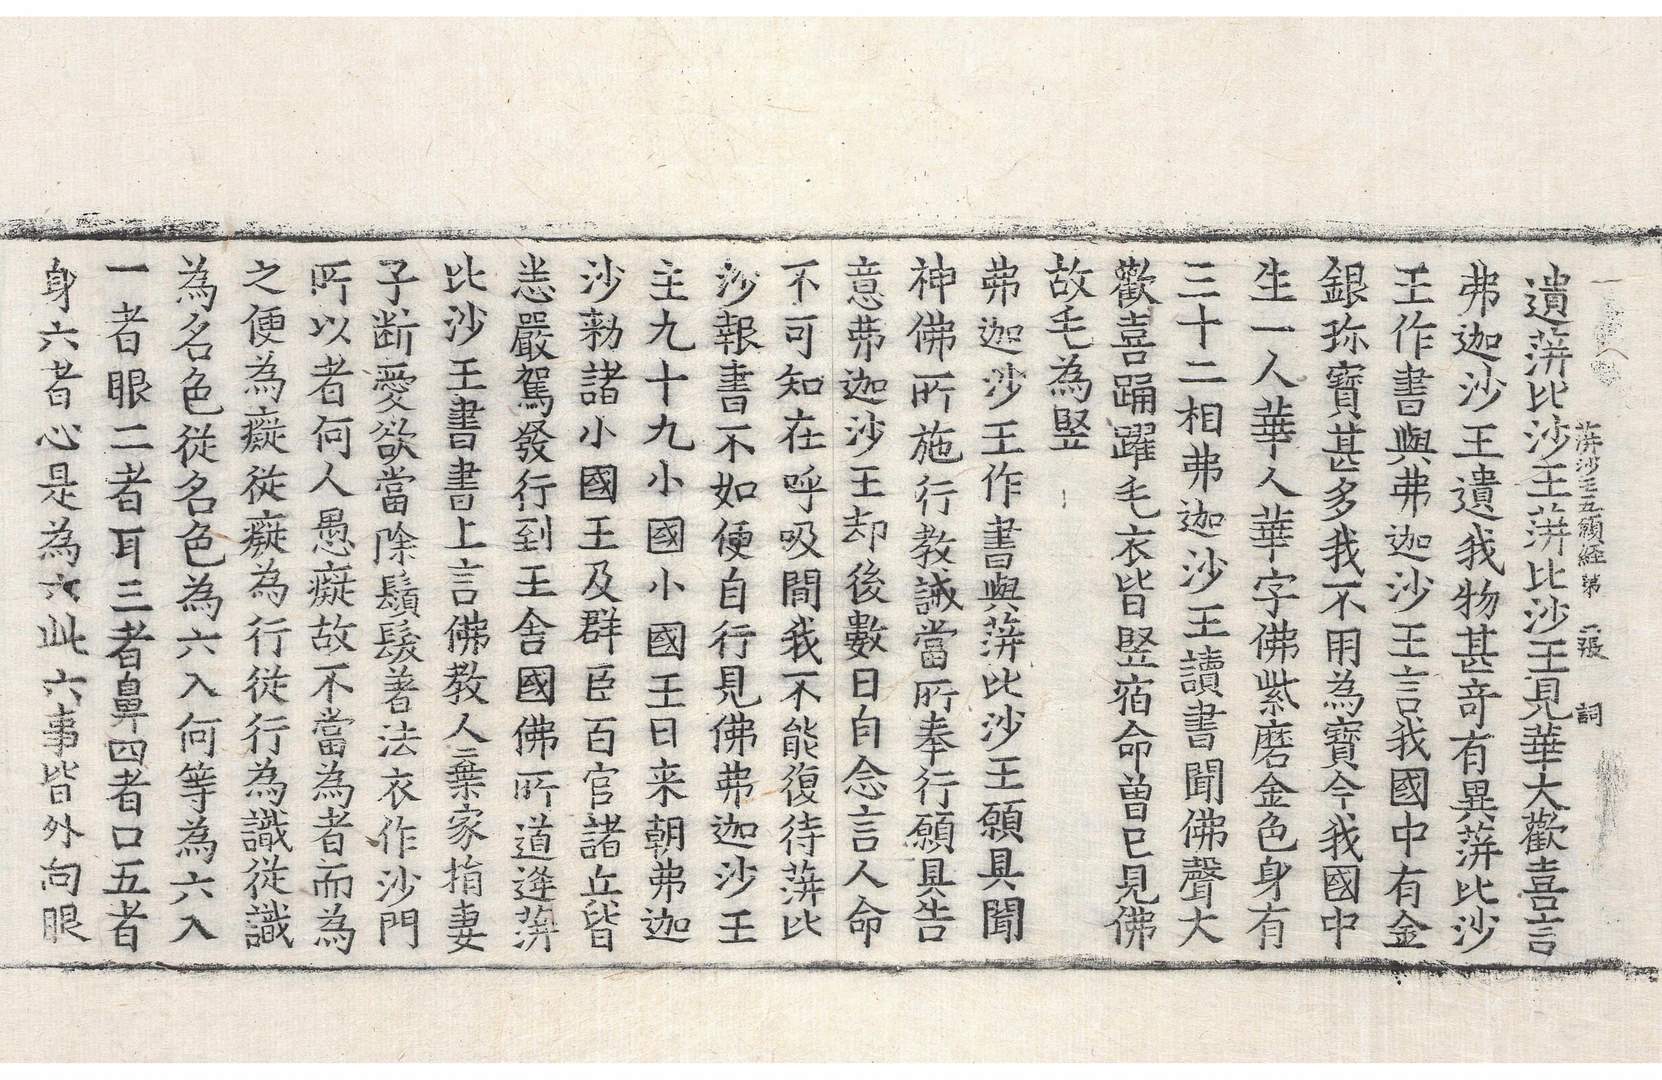 蓱沙王五願經 第二張 詞
遺蓱比沙王蓱比沙王見華大歡喜言
弗迦沙王遺我物甚竒有異蓱比沙
王作書與弗迦沙王言我國中有金
銀珎寶甚多我不用為寶今我國中
生一人華人華字佛紫磨金色身有
三十二相弗迦沙王讀書聞佛聲大
歡喜踊躍毛衣皆竪宿命曽已見佛
故毛為竪
弗迦沙王作書與蓱比沙王願具聞
神佛所施行教誡當所奉行願具告
意弗迦沙王却後數日自念言人命
不可知在呼吸間我不能復待蓱比
沙報書不如便自行見佛弗迦沙王
主九十九小國小國王日来朝弗迦
沙勑諸小國王及群臣百官諸兵皆
悉嚴駕發行到王舍國佛所道逢蓱
比沙王書書上言佛教人棄家捐妻
子断愛欲當除鬚髮著法衣作沙門
所以者何人愚癡故不當為者而為
之便為癡從癡為行從行為識從識
為名色從名色為六入何等為六入
一者眼二者耳三者鼻四者口五者
身六者心是為六此六事皆外向眼